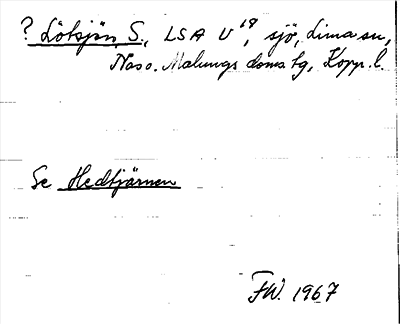 ? Lötsjön, S., LSA U 19, sjö, Lima sn,
Nas o. Malungs doms.tg, Kopp. l.
Se Hedtjärnen
FW. 1967